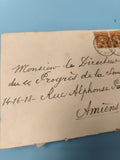 Monsieur le Directeur
du "Progrès de la Som
14-16-18- Rue Alphonse Pa
Amiens